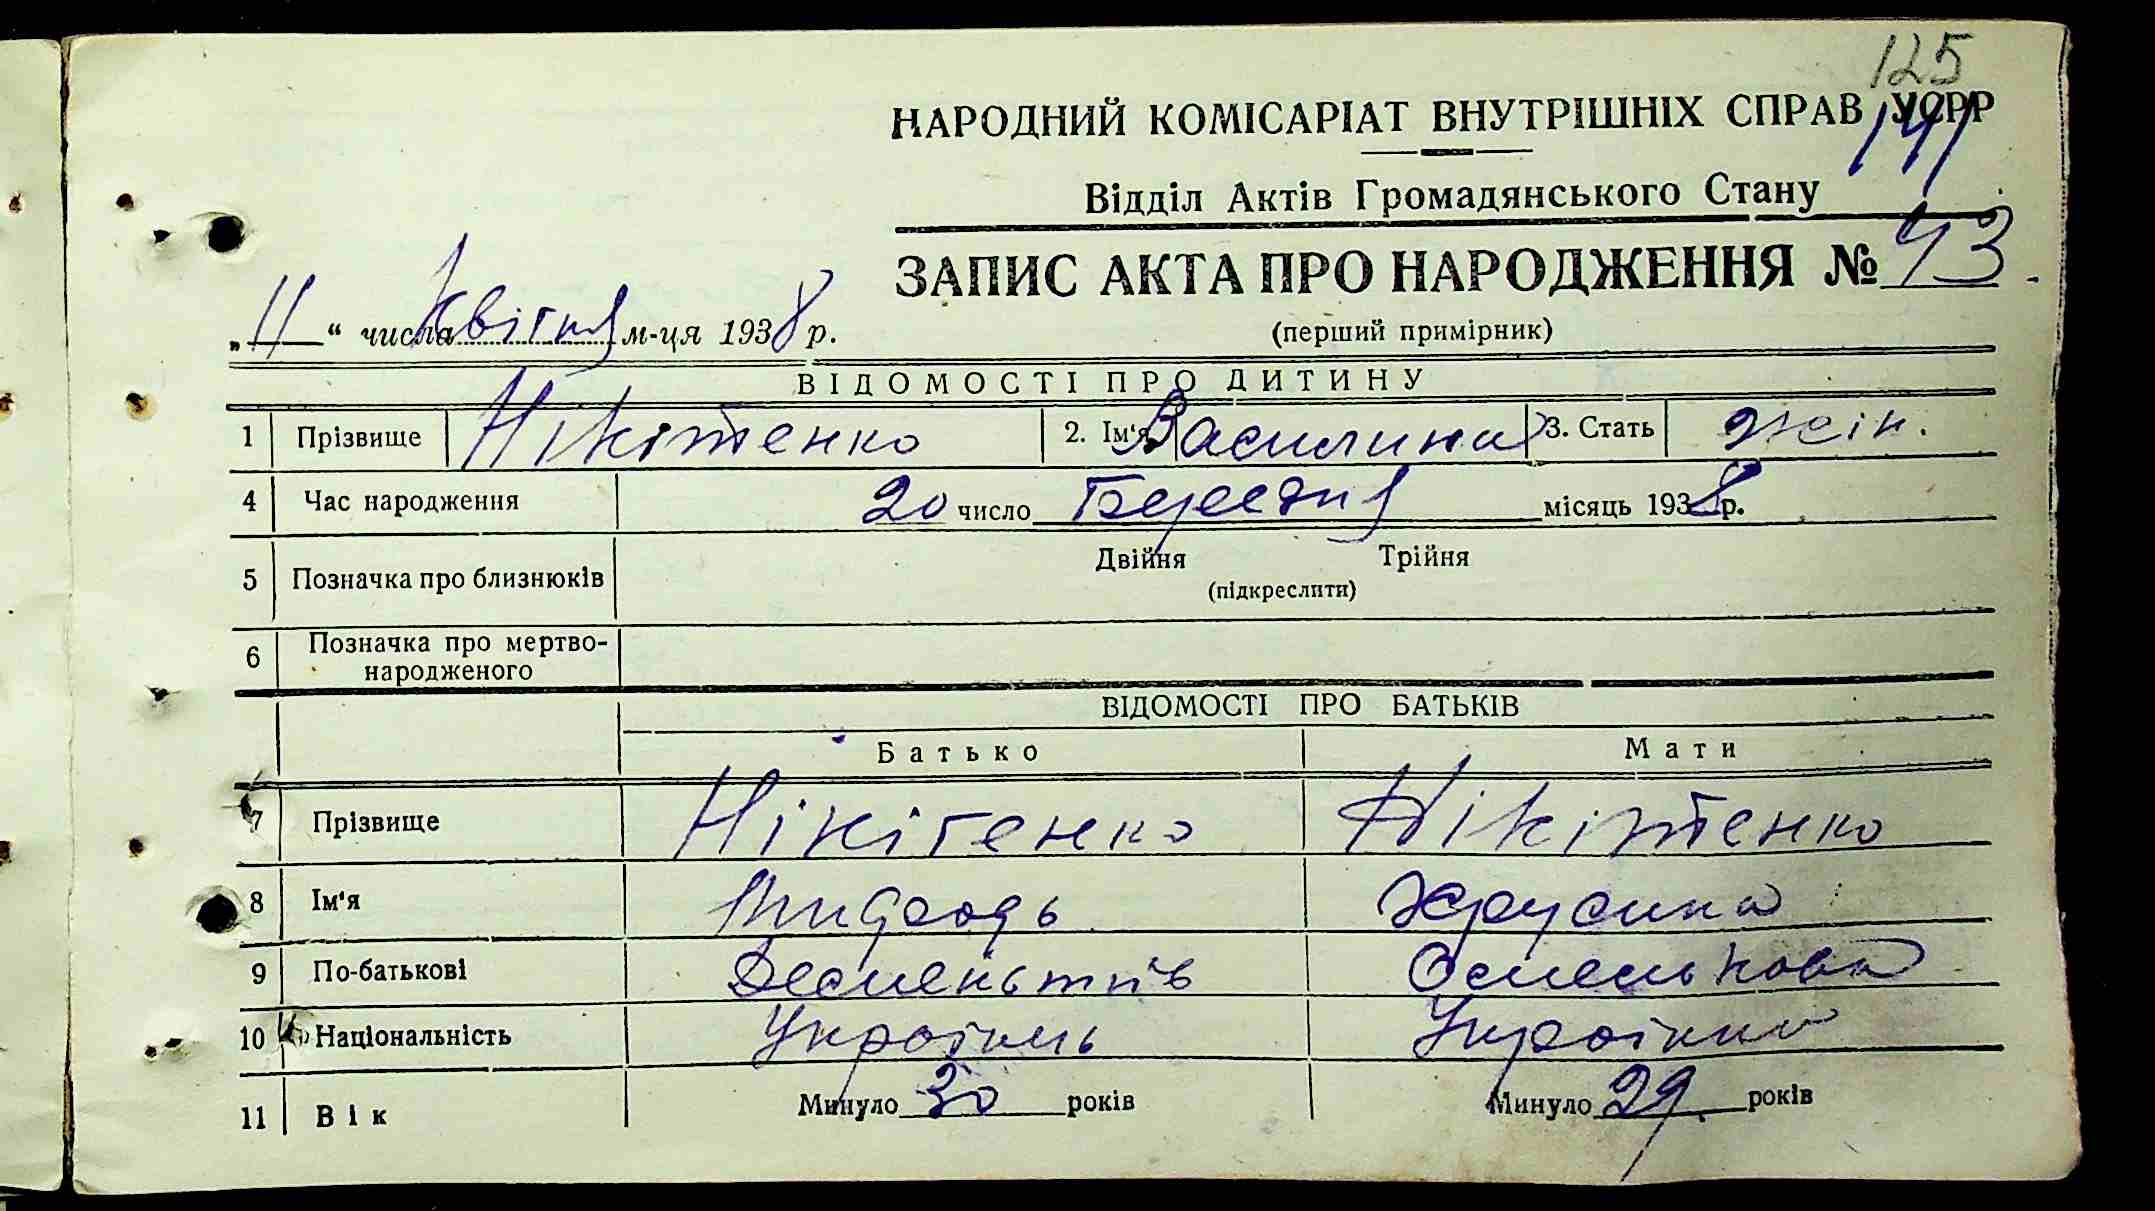 125
НАРОДНИЙ КОМІСАРІАТ ВНУТРІШНІХ СПРАВ УСРР
141
Відділ Актів Громадянського Стану
ЗАПИС АКТА ПРО НАРОДЖЕННЯ № 43
„11“ числа Квітня м-ця 1938 р.
(перший примірник)
ВІДОМОСТІ ПРО ДИТИНУ
1 Прізвище Нікітенко 2. Ім'я Василина 3. Стать жін.
4 Час народження 20 число Березня місяць 1938 р.
5 Позначка про близнюків Двійня Трійня
(підкреслити)
6 Позначка про мертво-
народженого
ВІДОМОСТІ ПРО БАТЬКІВ
Батько Мати
7 Прізвище Нікітенко Нікітенко
8 Ім'я
9 По-батькові
10 Національність Українець Українка
11 Вік Минуло 30 років Минуло 29 років